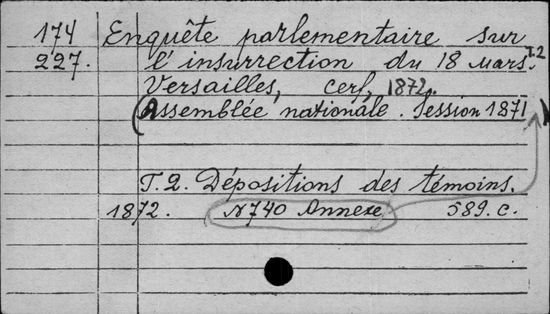 174 Enquête parlementaire sur
227. l'insurrection du 18 Mars. T.2
Versailles, cerf, 1872.
(Assemblée nationale. Session 1871)
T.2. Dépositions des témoins.
1872. N740 Annexe 589. c.